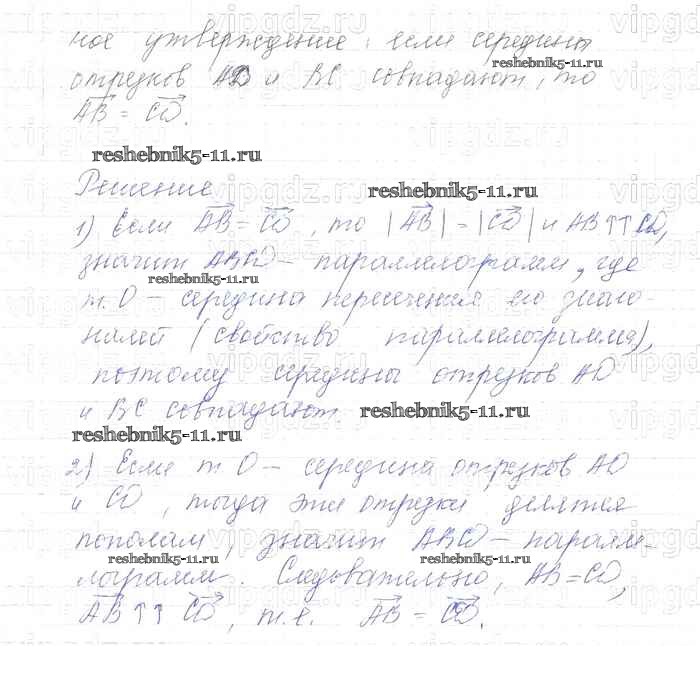 ное утверждение: если середины
reshebnik5-11.ru
отрезков AD и BC совпадают, то
AB = CD.
reshebnik5-11.ru
Решение
reshebnik5-11.ru
1) Если AB = CD, то |AB| = |CD| и AB ↑↑ CD,
значит ABCD – параллелограмм, где
reshebnik5-11.ru
т. O – середина пересечения его диаго-
налей (свойство параллелограмма),
поэтому середины отрезков AD
и BC совпадают.
reshebnik5-11.ru
reshebnik5-11.ru
2) Если т O – середина отрезков AD
и CD, тогда эти отрезки делятся
пополам, значит ABCD – паралле-
reshebnik5-11.ru
reshebnik5-11.ru
лограмм. Следовательно, AB = CD,
AB ↑↑ CD, т.е. AB = CD.